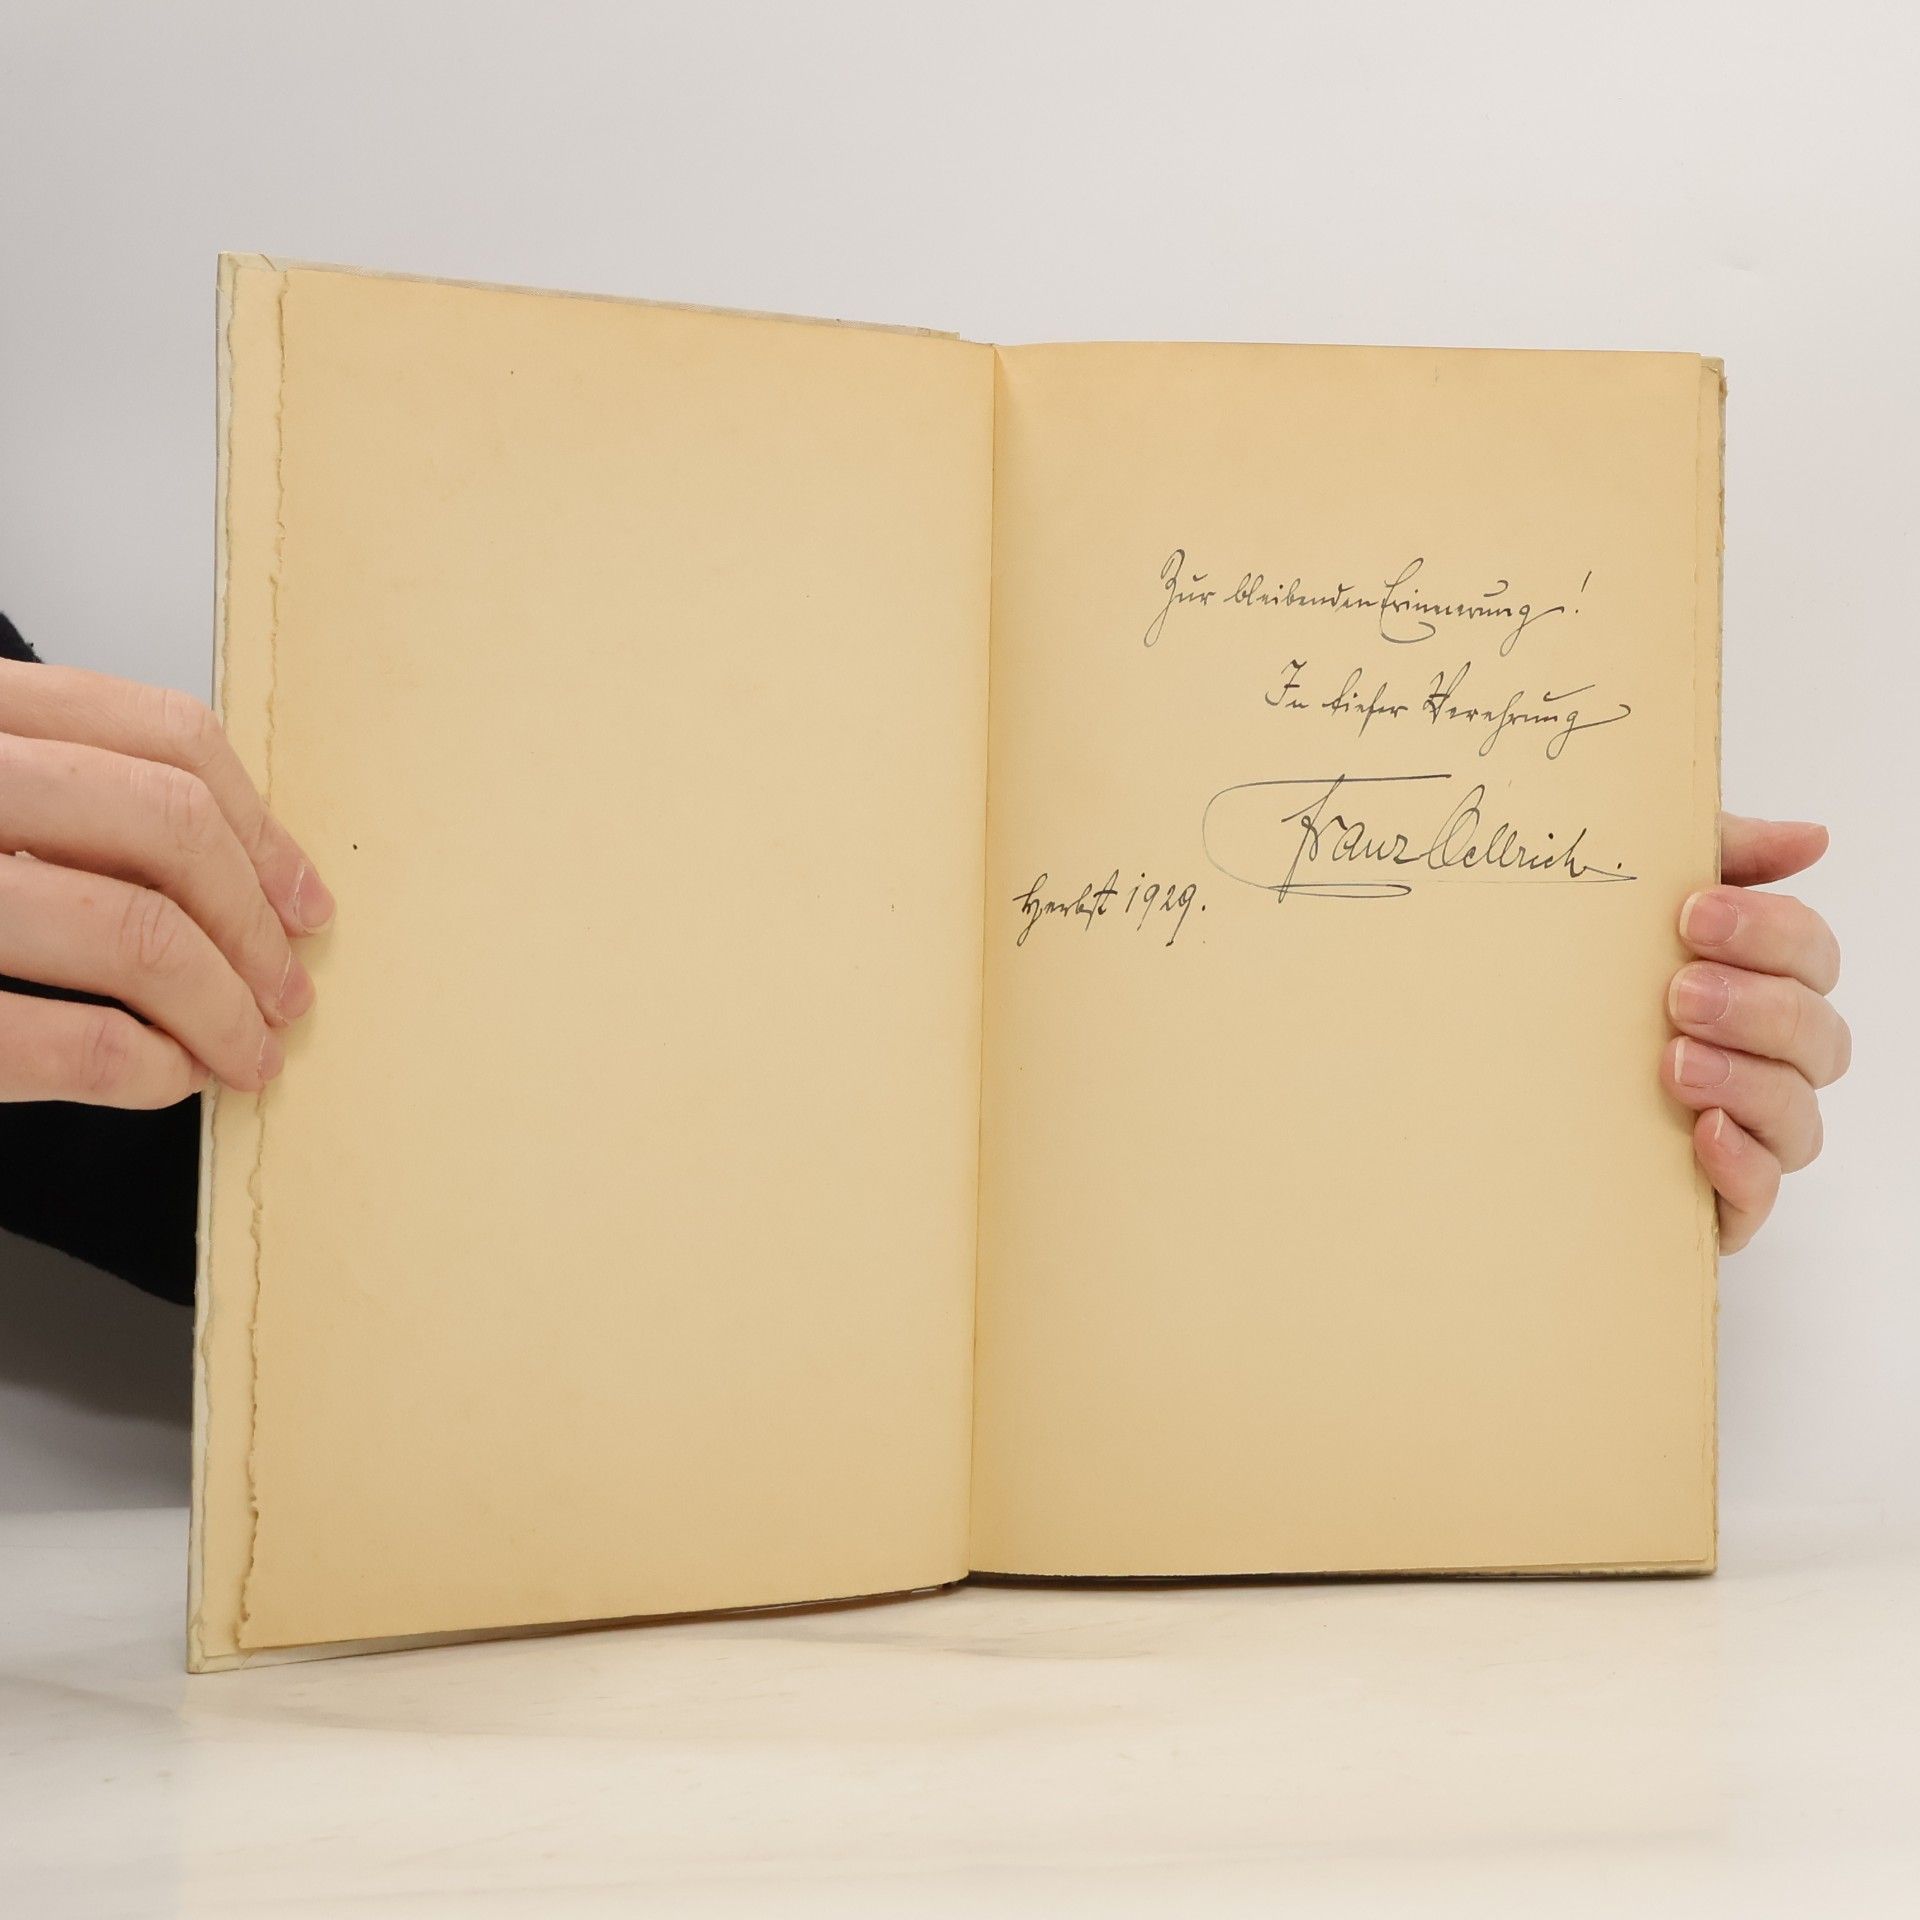 Zur bleibenden Erinnerung!
In tiefer Verehrung
Franz Oellrich.
Herbst 1929.